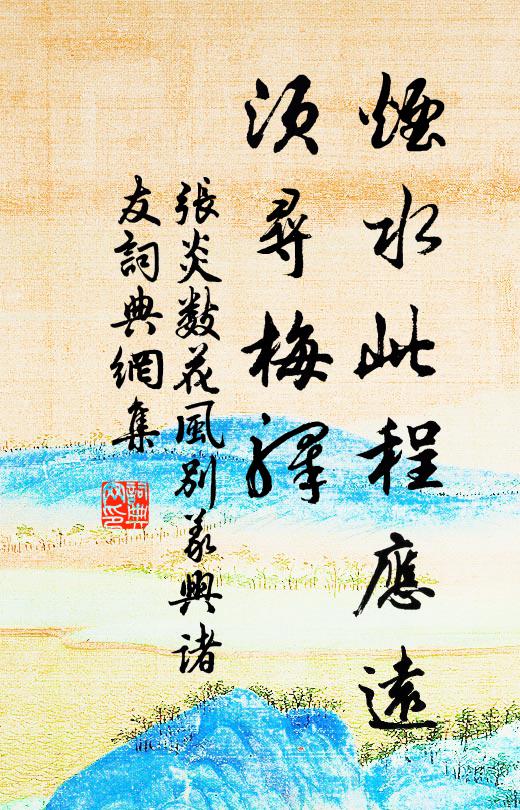 煙水此程應遠
須尋梅驛
張炎數花風別義興諸
友詞典網集
詞典網印